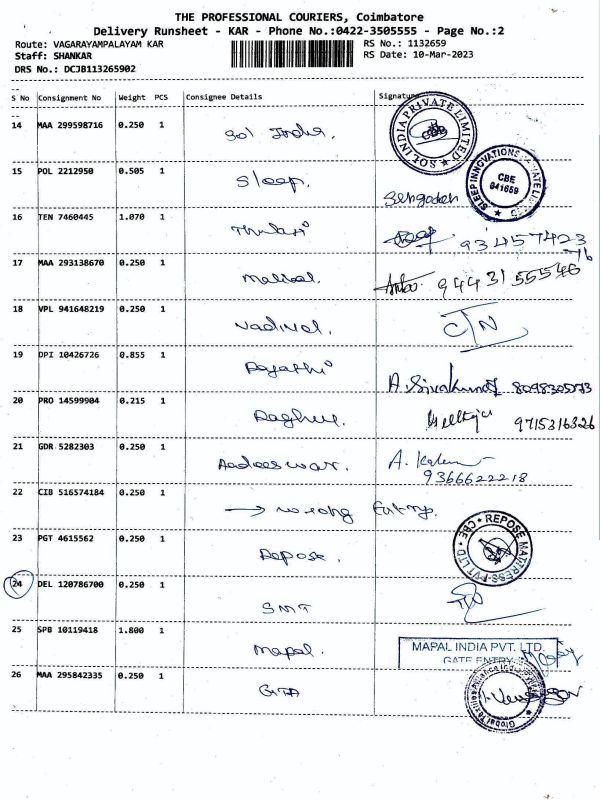 THE PROFESSIONAL COURIERS, Coimbatore
Delivery Runsheet - KAR - Phone No.:0422-3505555 - Page No.:2
Route: VAGARAYAMPALAYAM KAR RS No.: 1132659
Staff: SHANKAR RS Date: 10-Mar-2023
DRS No.: DCJB113265902
S No Consignment No Weight PCS Consignee Details Signature
14 MAA 299598716 0.250 1 Sol India. SOL INDIA PRIVATE LIMITED
15 POL 2212950 0.505 1 Sleep. Sengodan SLEEP INNOVATIONS CBE 641659
16 TEN 7460445 1.070 1 Thulasi 9345742376
17 MAA 293138670 0.250 1 9443155546
18 VPL 941648219 0.250 1 Vadivel.
19 DPI 10426726 0.855 1 A. Sivakumar
20 PRO 14599904 0.215 1 Raghu. 9715316326
21 GDR 5282303 0.250 1 Aadeeswar. A.
9366622218
22 CIB 516574184 0.250 1 → wrong Entry.
23 PGT 4615562 0.250 1 Repose. REPOSE MATTRESS PVT LTD CBE
24 DEL 120786700 0.250 1 SMT
25 SPB 10119418 1.800 1 Mapal. MAPAL INDIA PVT. LTD.
GATE ENTRY
26 MAA 295842335 0.250 1 GTA